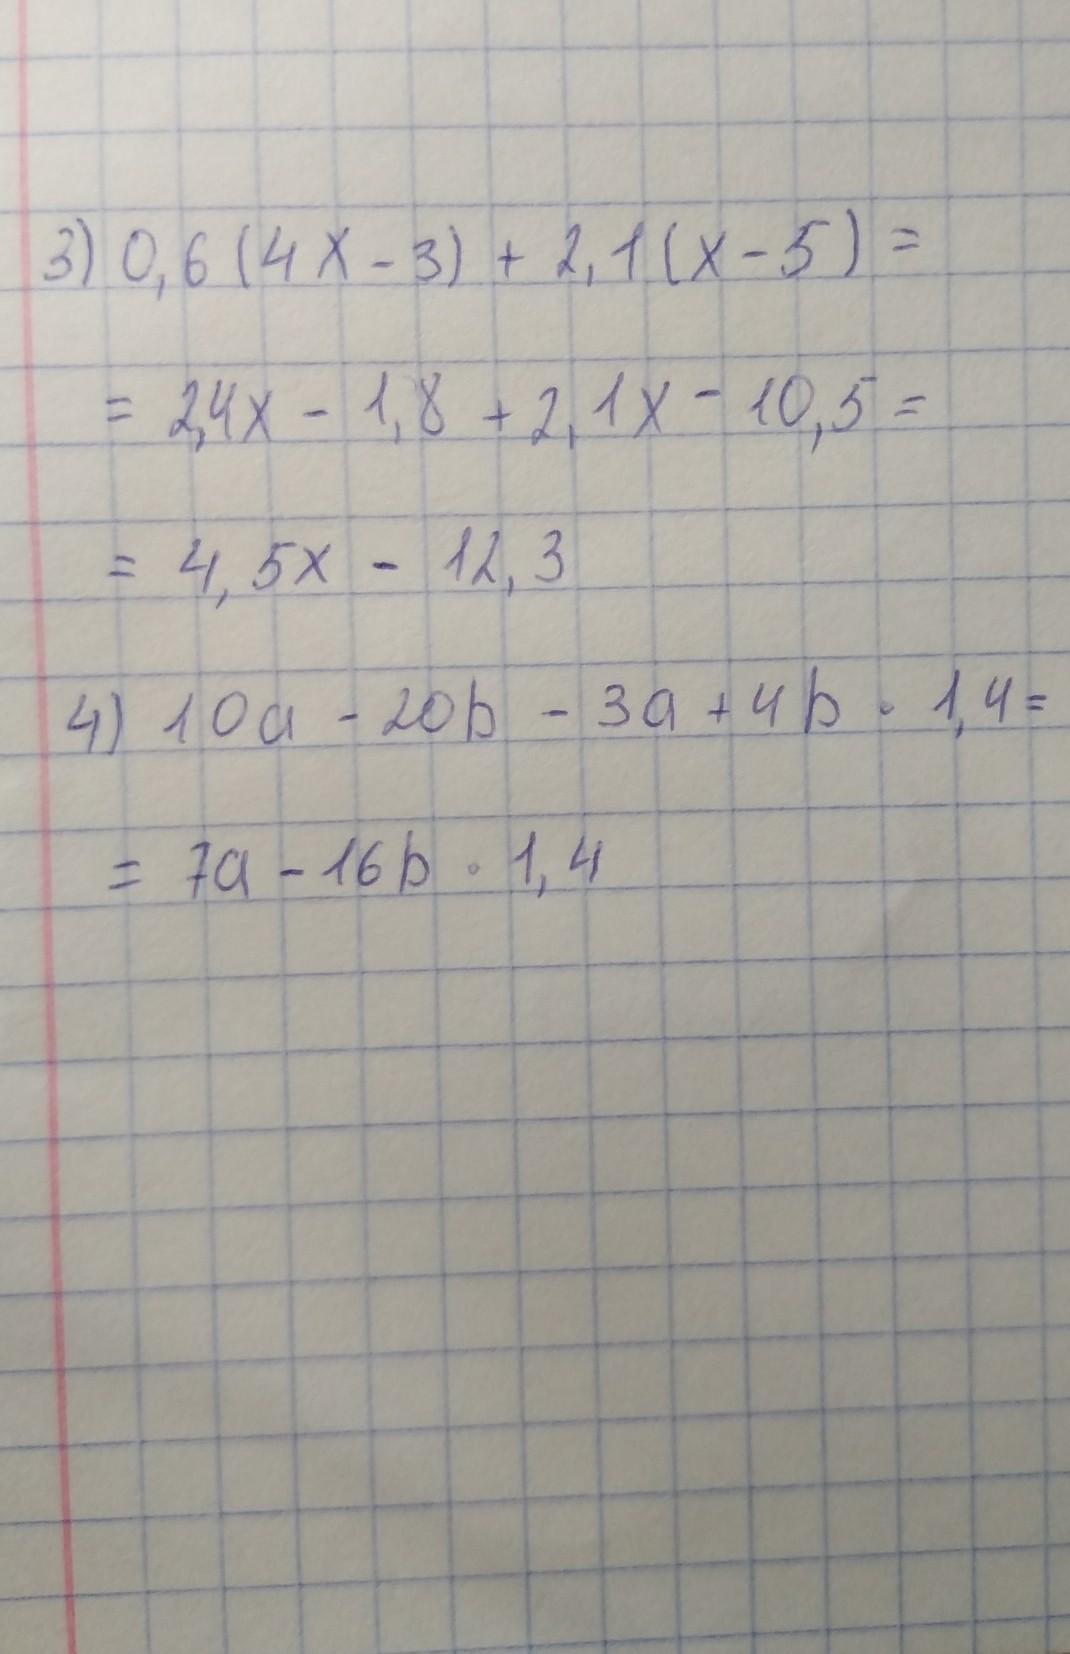 3) 0,6(4x-3) + 2,1(x-5) =
= 2,4x - 1,8 + 2,1x - 10,5 =
= 4,5x - 12,3
4) 10a - 20b - 3a + 4b · 1,4 =
= 7a - 16b · 1,4